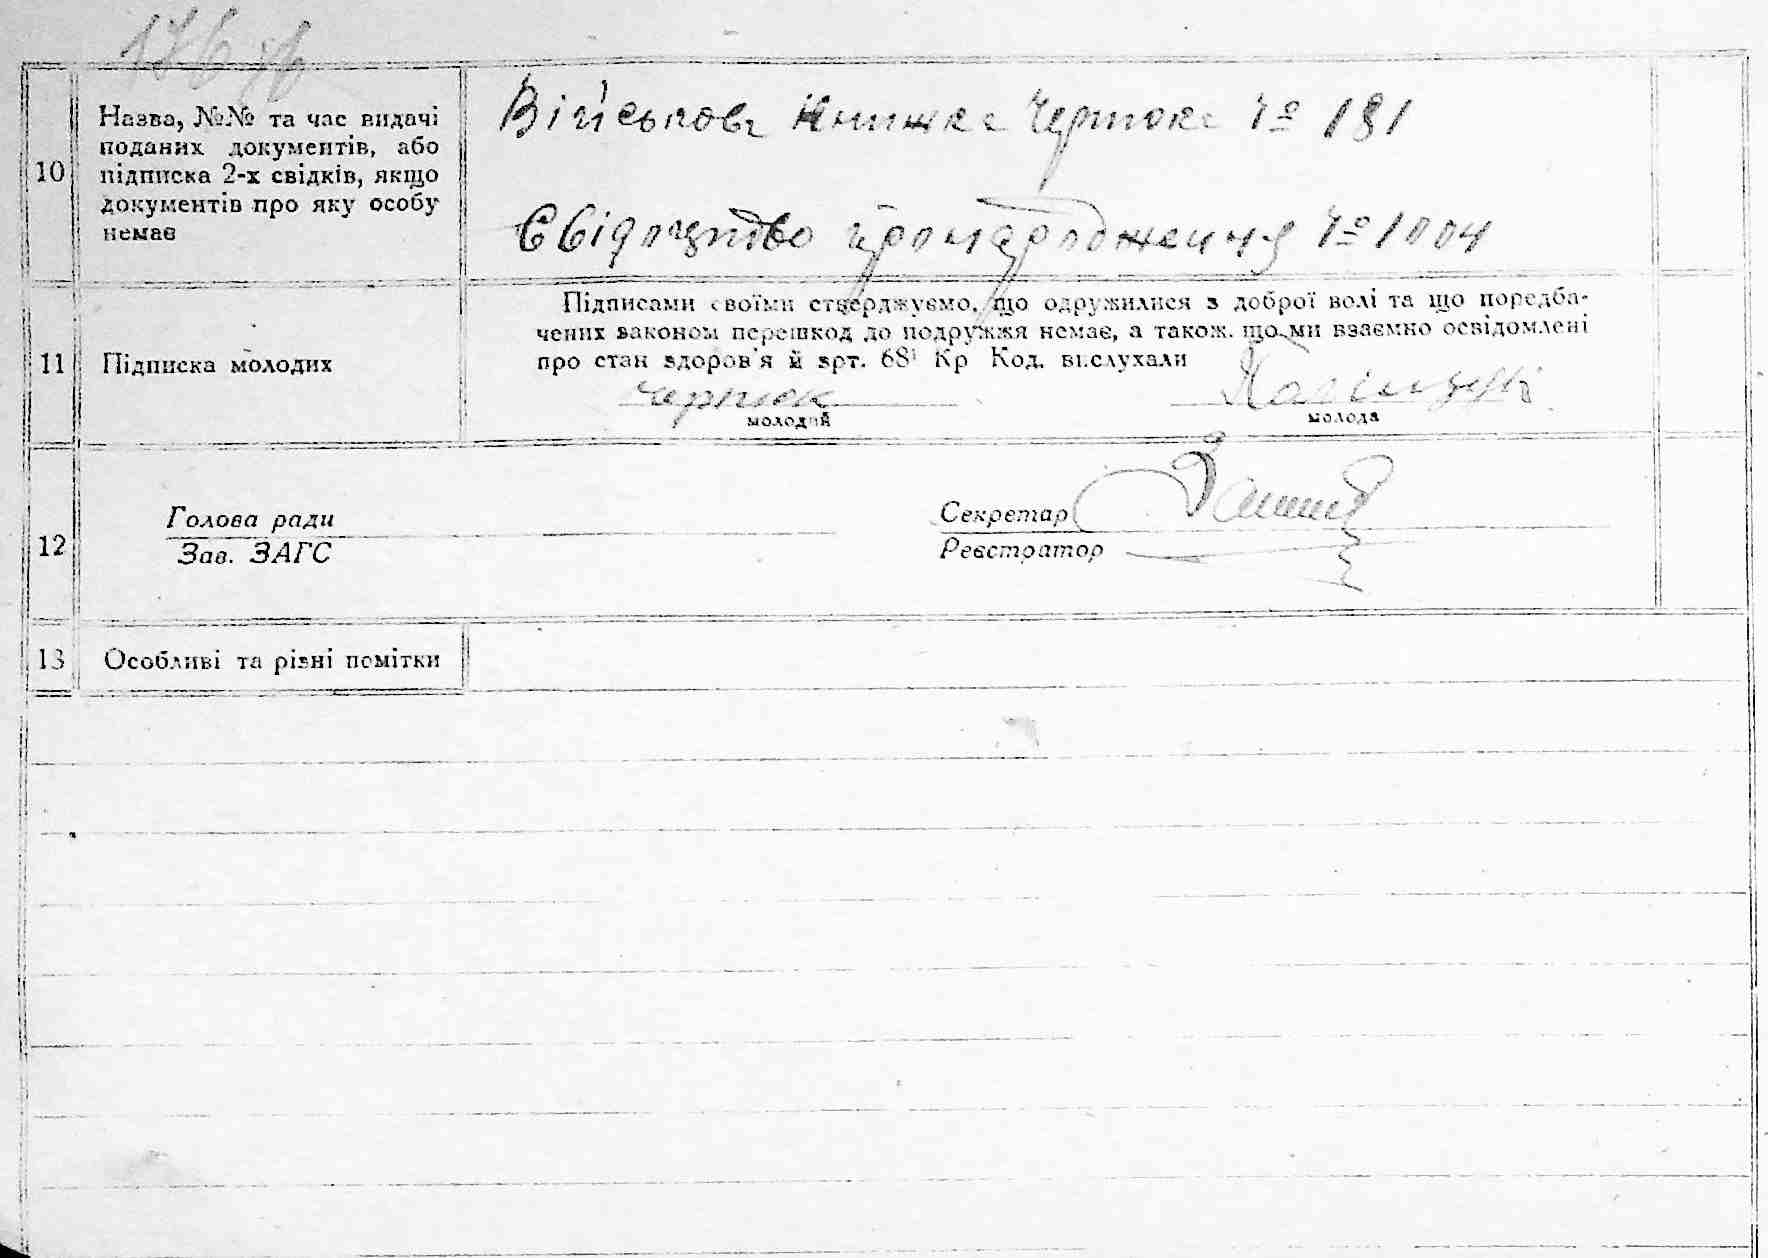 176
10
Назва, №№ та час видачі
поданих документів, або
підписка 2-х свідків, якщо
документів про яку особу
немає
Військова книжка Чертока № 191
Свідоцтво про народження № 1004
11
Підписка молодих
Підписами своїми стверджуємо, що одружилися з доброї волі та що поредба-
чених законом перешкод до подружжя немає, а також. що ми взаємно освідомлені
про стан здоров'я й арт. 68¹ Кр Код. вислухали
Черток
молодий
молода
12
Голова ради
Секретар
Зав. ЗАГС
Реєстратор
13
Особливі та різні помітки